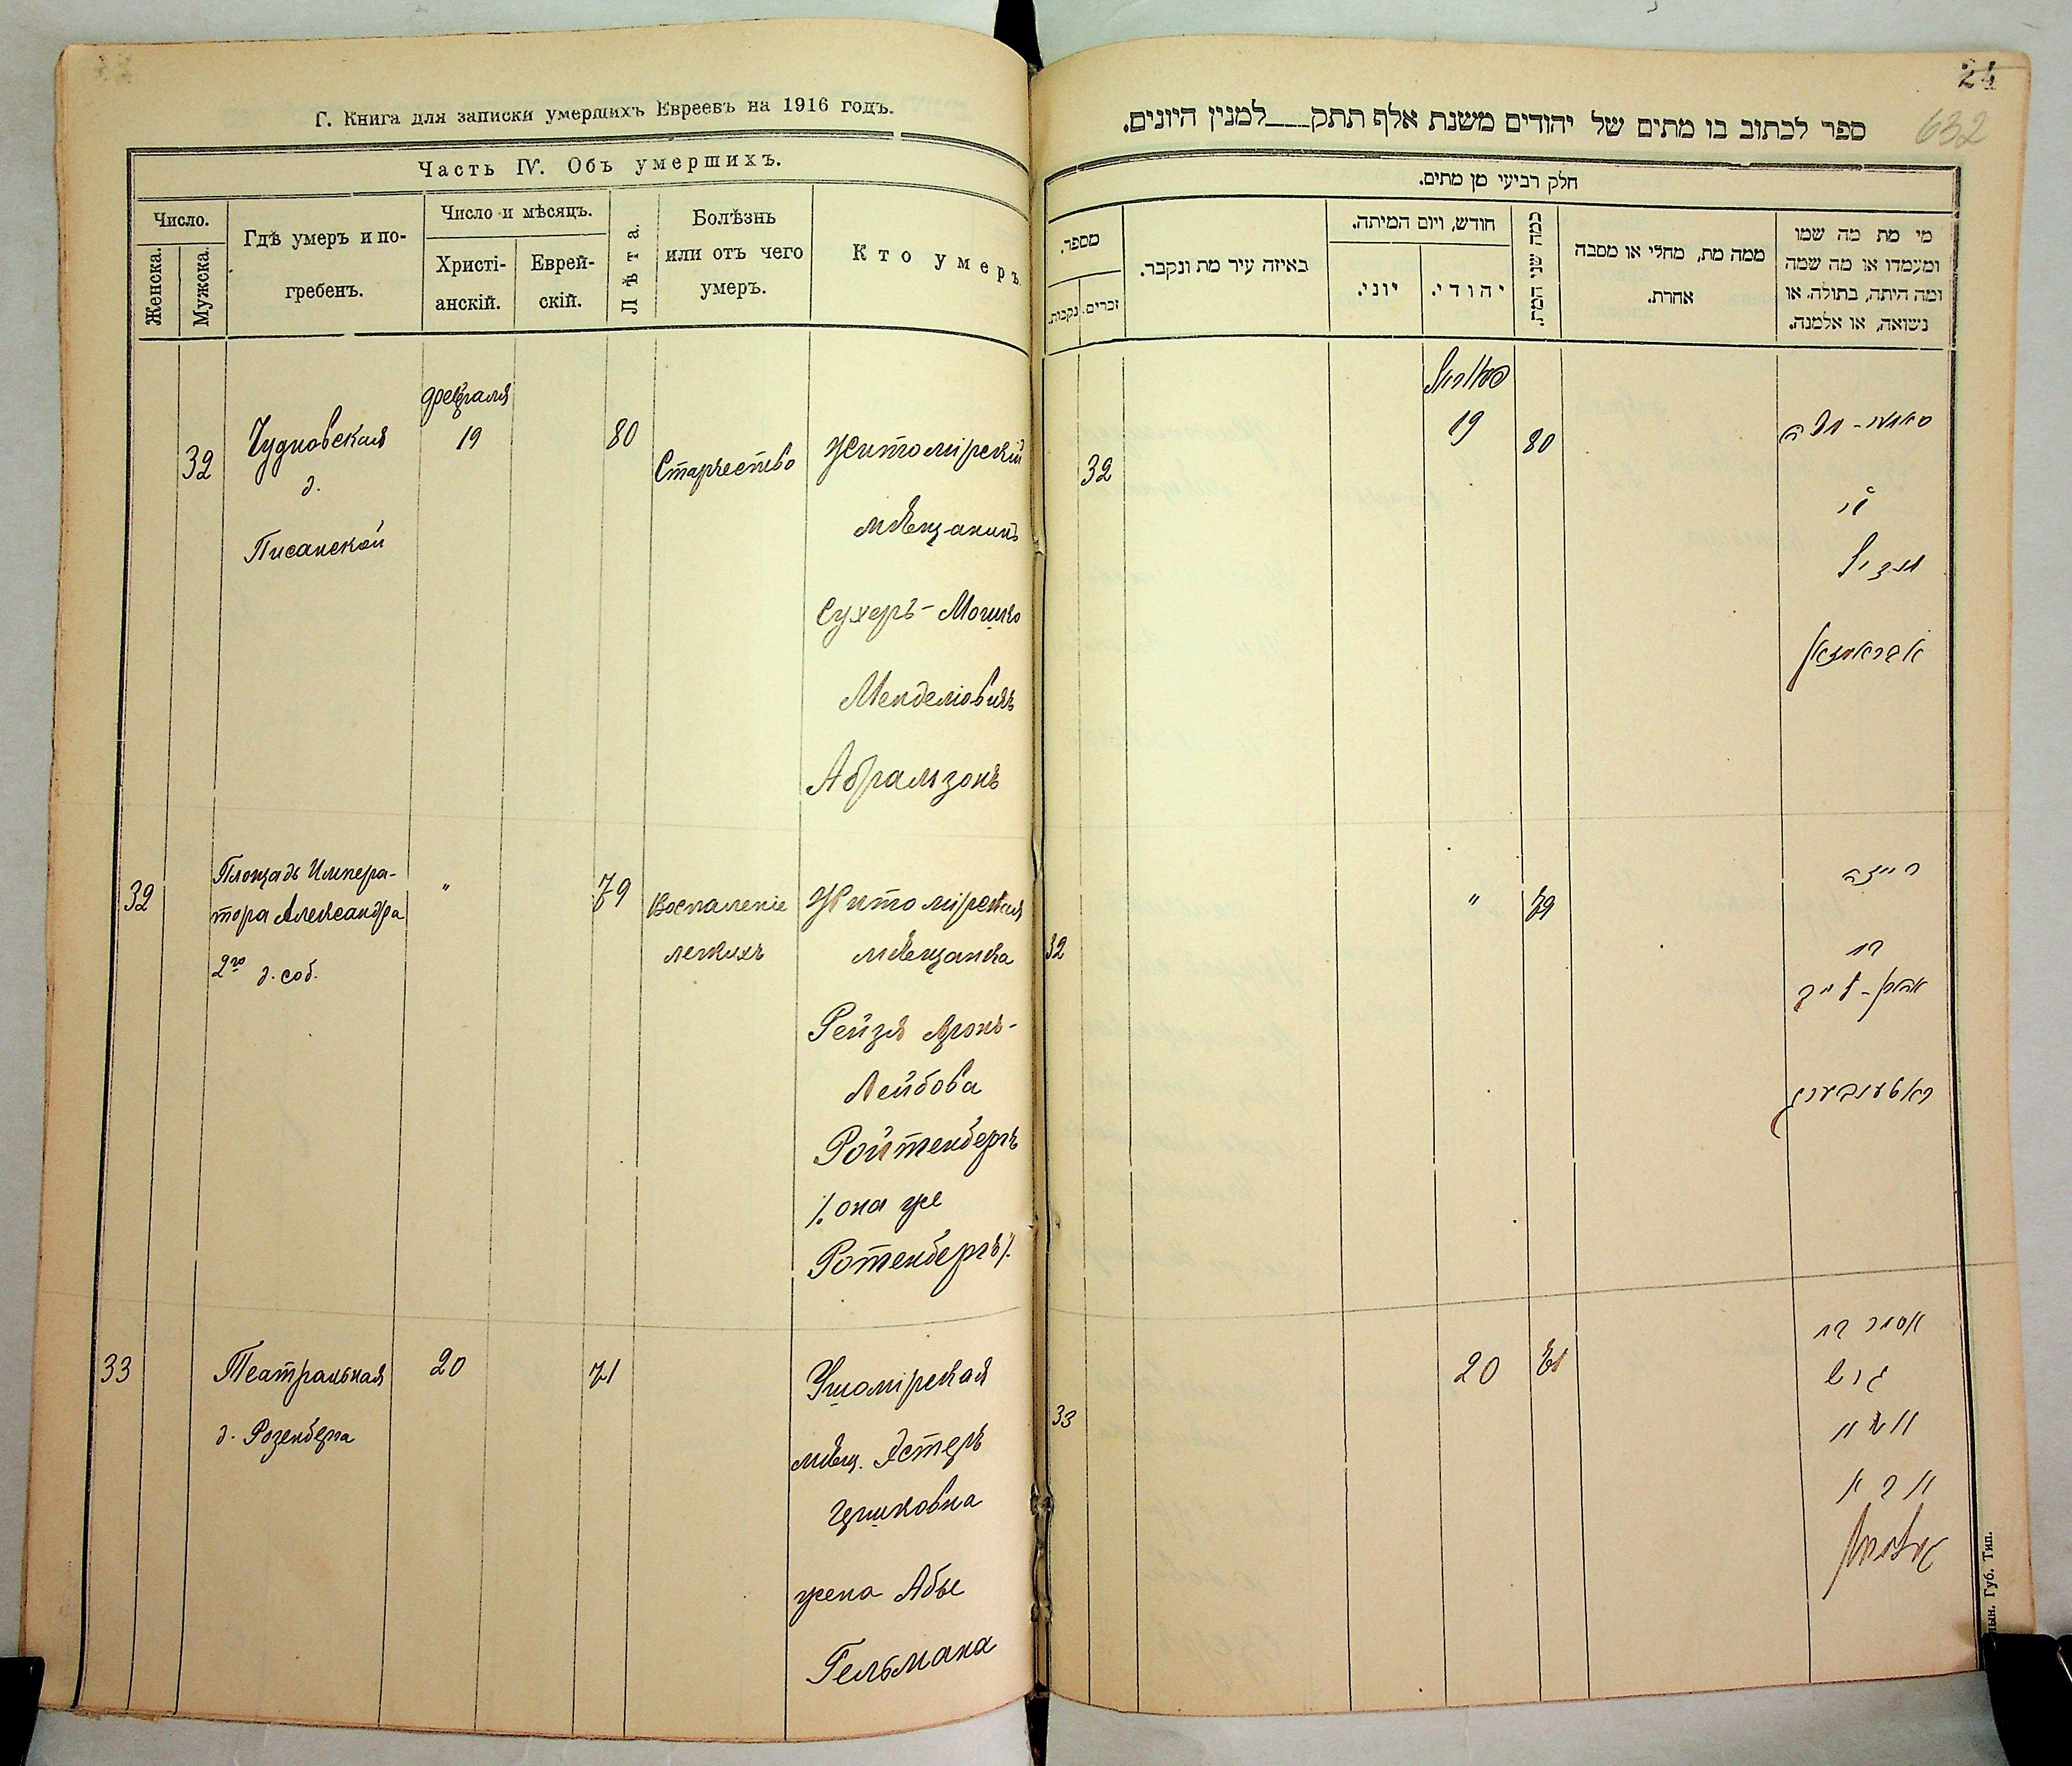 Г. Книга для записки умершихъ Евреевъ на 1916 годъ.
Часть IV. Объ умершихъ.
Число.
Женска.
Мужска.
Гдѣ умеръ и по-
гребенъ.
Число и мѣсяцъ.
Христі-
анскій.
Еврей-
скій.
Лѣта.
Болѣзнь
или отъ чего
умеръ.
Кто умеръ.
32
Чудновская
д.
Писанской
февраля
19
80
Старчество
Житомірскій
мѣщанинъ
Сухеръ-Мошко
Менделіовичъ
Абрамзонъ
32
Площадь Импера-
тора Александра
2го д. соб.
"
79
Воспаленіе
легкихъ
Житомірская
мѣщанка
Рейзя Аронъ-
Лейбова
Ройтенбергъ
/. она же
Ротенбергъ/.
33
Театральная
д. Розенберга
20
71
Ушомірская
мѣщ. Эстеръ
Гершковна
жена Абы
Гельмана
24
632
ספר לכתוב בו מתים של יהודים משנת אלף תתק___למנין היונים.
חלק רביעי מן מתים.
מספר.
נקבות.
זכרים.
באיזה עיר מת ונקבר.
חודש, ויום המיתה.
יוני.
יהודי.
כמה שני המת.
ממה מת, מחלי או מסבה
אחרת.
מי מת מה שמו
ומעמדו או מה שמה
ומה היתה, בתולה. או
נשואה, או אלמנה.
32
19
80
אבראמזאן
32
"
79
רייזה
בת
אהרן-לייב
ראטענבערג
33
20
71
אסתר בת
הירש
אשת
אבא
העלמאן
Губ. Тип.